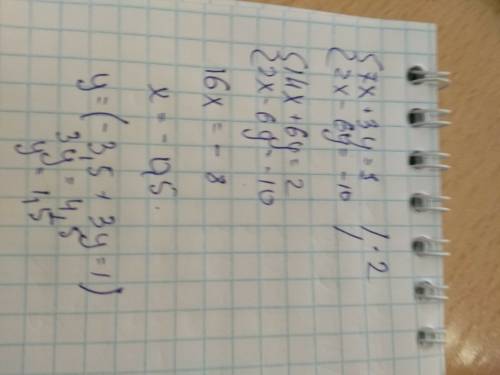 {7x + 3y = 1 / · 2
{2x - 6y = -10 /
{14x + 6y = 2
{2x - 6y = -10
16x = -8
x = -0,5.
y = (-3,5 + 3y = 1)
3y = 4,5
y = 1,5